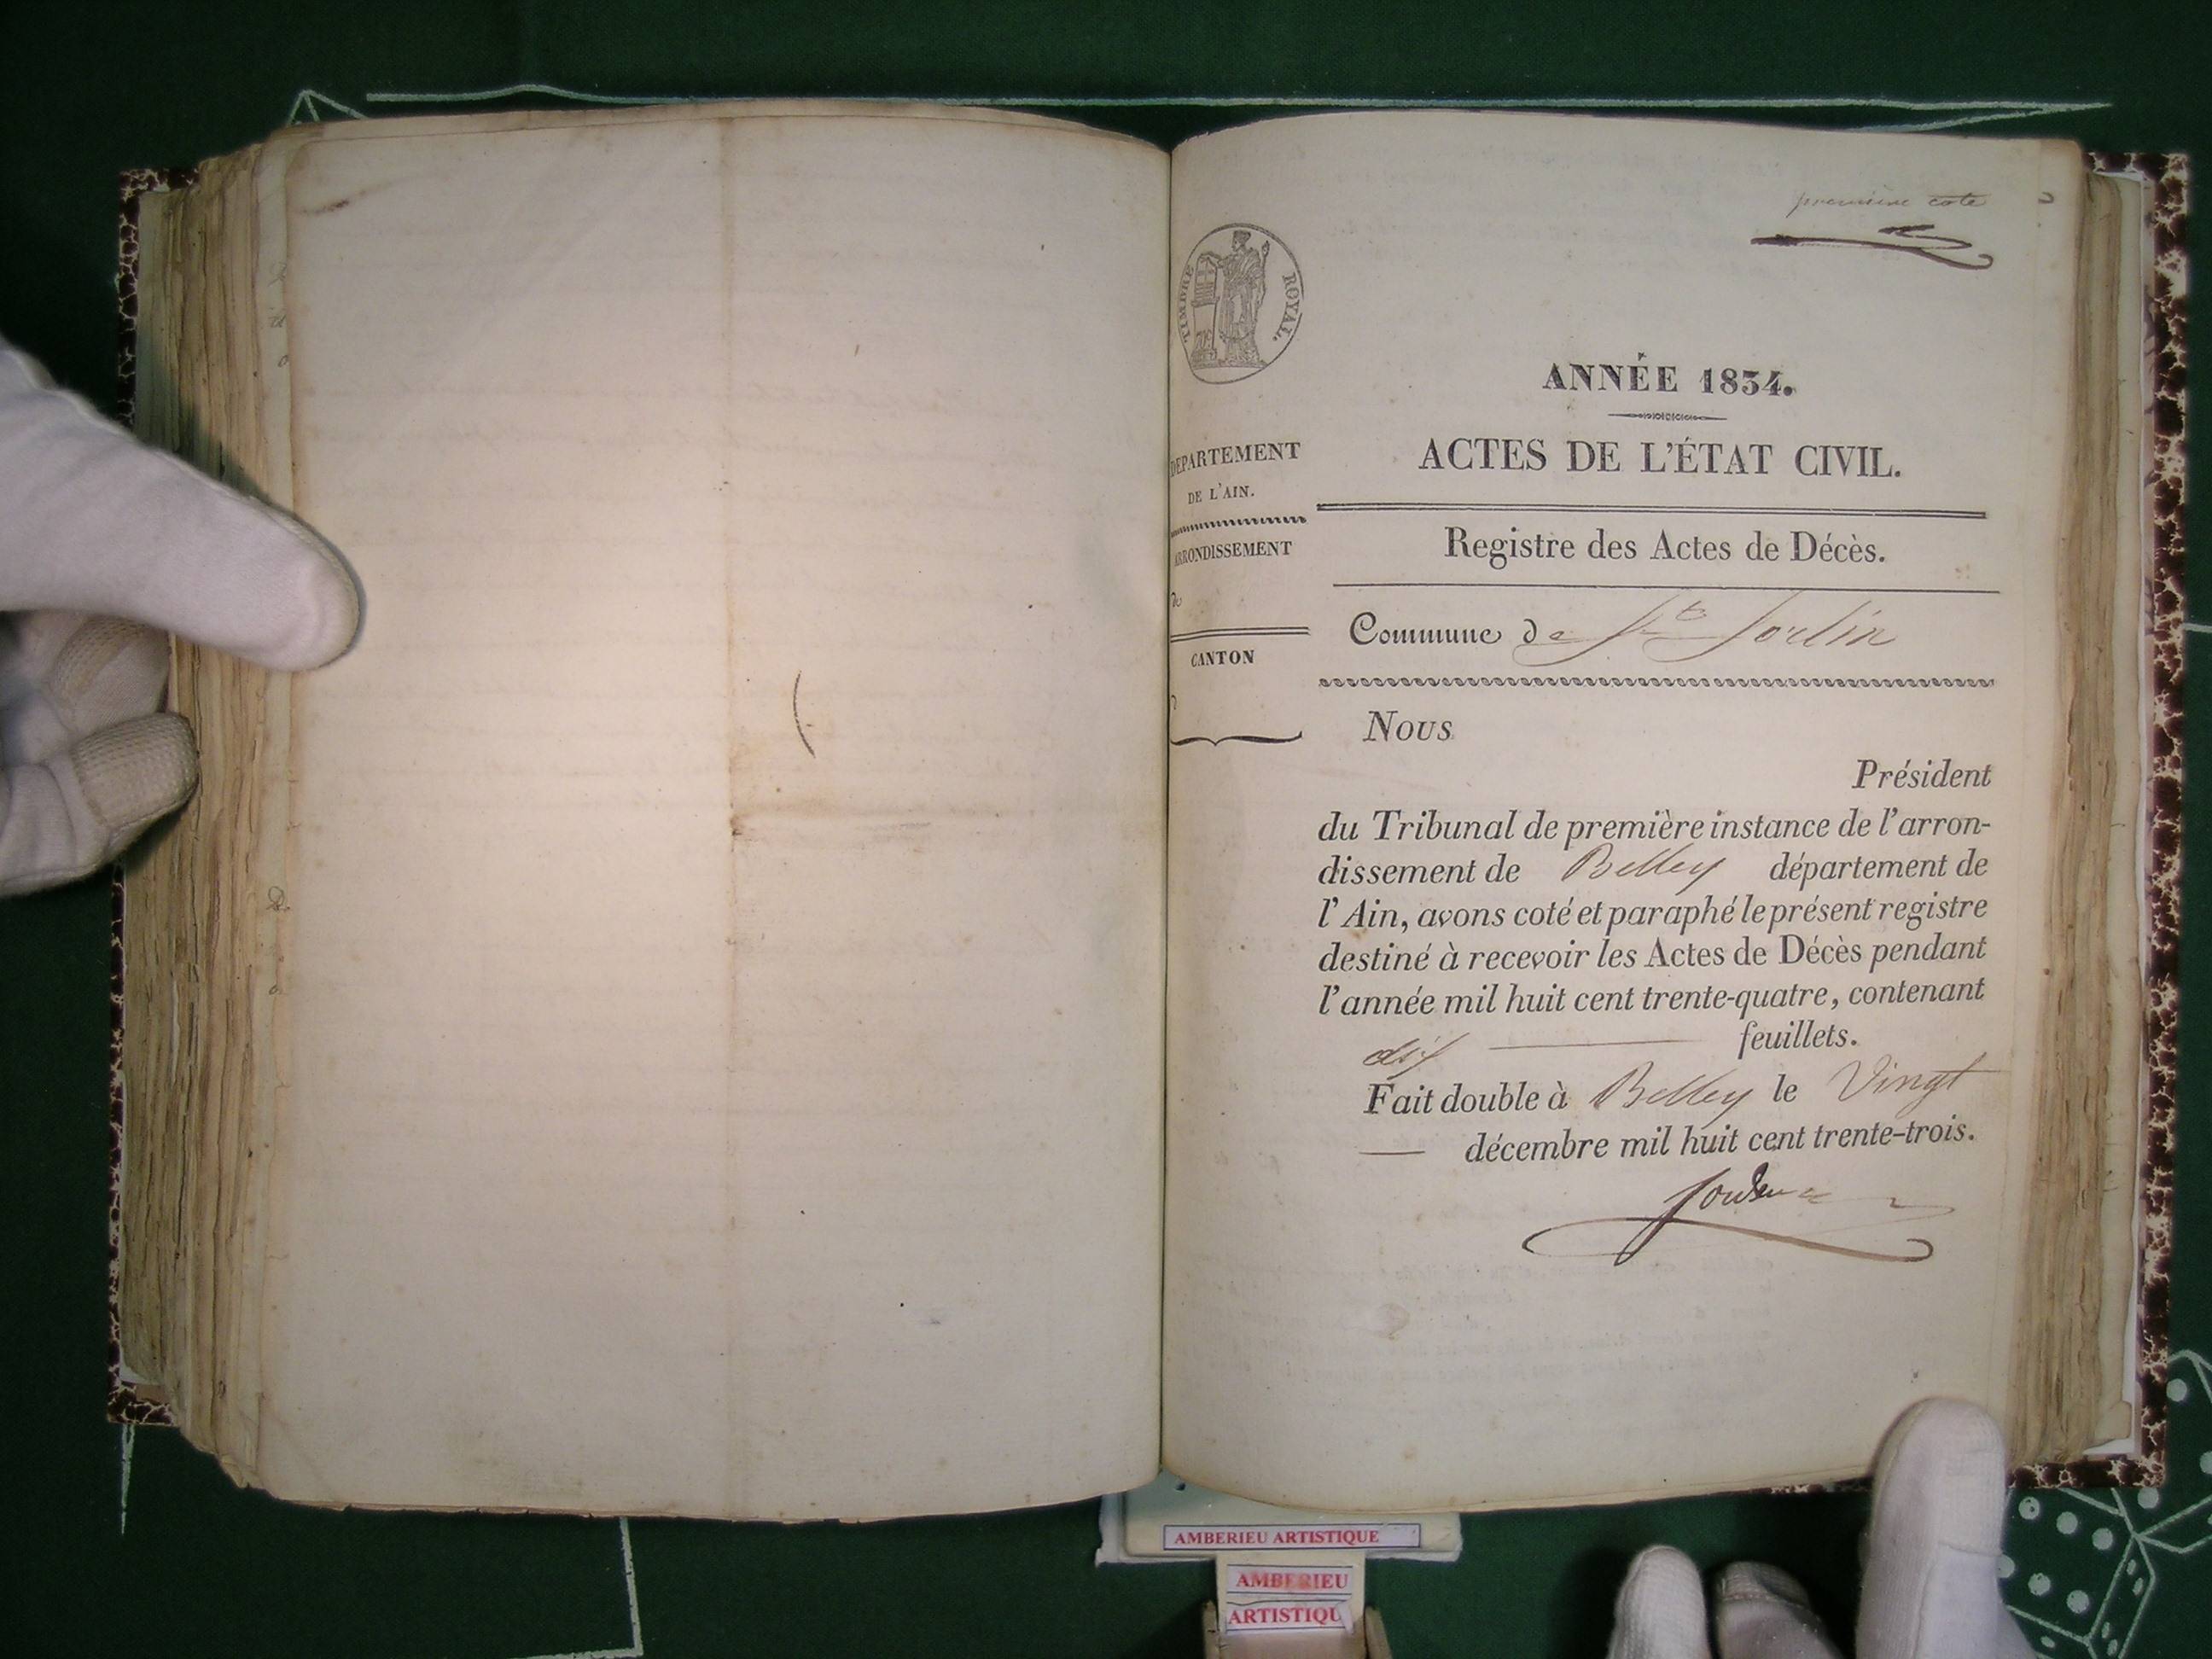 première cote
TIMBRE ROYAL.
ANNÉE 1834.
ACTES DE L'ÉTAT CIVIL.
DÉPARTEMENT
DE L'AIN.
ARRONDISSEMENT
de
CANTON
d
Registre des Actes de Décès.
Commune de St Sorlin
Nous
Président
du Tribunal de première instance de l'arron-
dissement de Belley département de
l'Ain, avons coté et paraphé le présent registre
destiné à recevoir les Actes de Décès pendant
l'année mil huit cent trente-quatre, contenant
dix feuillets.
Fait double à Belley le Vingt
décembre mil huit cent trente-trois.
AMBERIEU ARTISTIQUE
AMBERIEU
ARTISTIQU